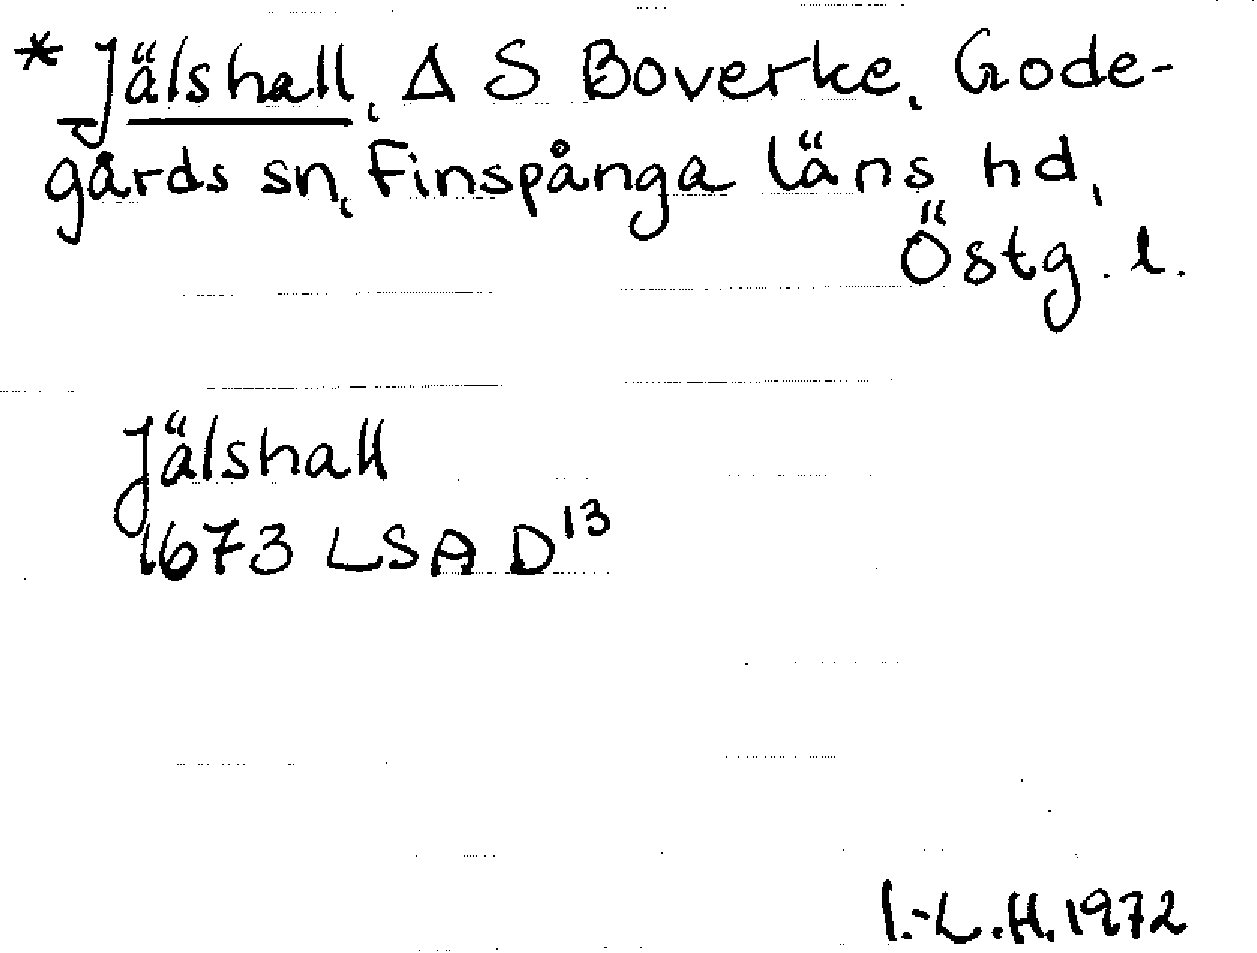 * Jälshall, Δ S Boverke, Gode-
gårds sn, Finspånga läns hd,
Östg. l.
Jälshall
1673 LSA D¹³
I.-L.H. 1972